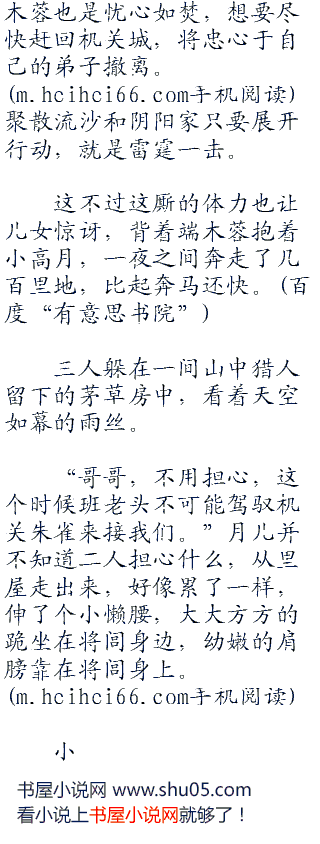 木蓉也是忧心如焚，想要尽
快赶回机关城，将忠心于自
己的弟子撤离。
(m.hcihci66.com手机阅读)
聚散流沙和阴阳家只要展开
行动，就是雷霆一击。
这不过这厮的体力也让
儿女惊讶，背着端木蓉抱着
小高月，一夜之间奔走了几
百里地，比起奔马还快。(百
度“有意思书院”)
三人躲在一间山中猎人
留下的茅草房中，看着天空
如幕的雨丝。
“哥哥，不用担心，这
个时候班老头不可能驾驭机
关朱雀来接我们。”月儿并
不知道二人担心什么，从里
屋走出来，好像累了一样，
伸了个小懒腰，大大方方的
跪坐在将闾身边，幼嫩的肩
膀靠在将闾身上。
(m.hcihci66.com手机阅读)
小
书屋小说网 www.shu05.com
看小说上书屋小说网就够了！